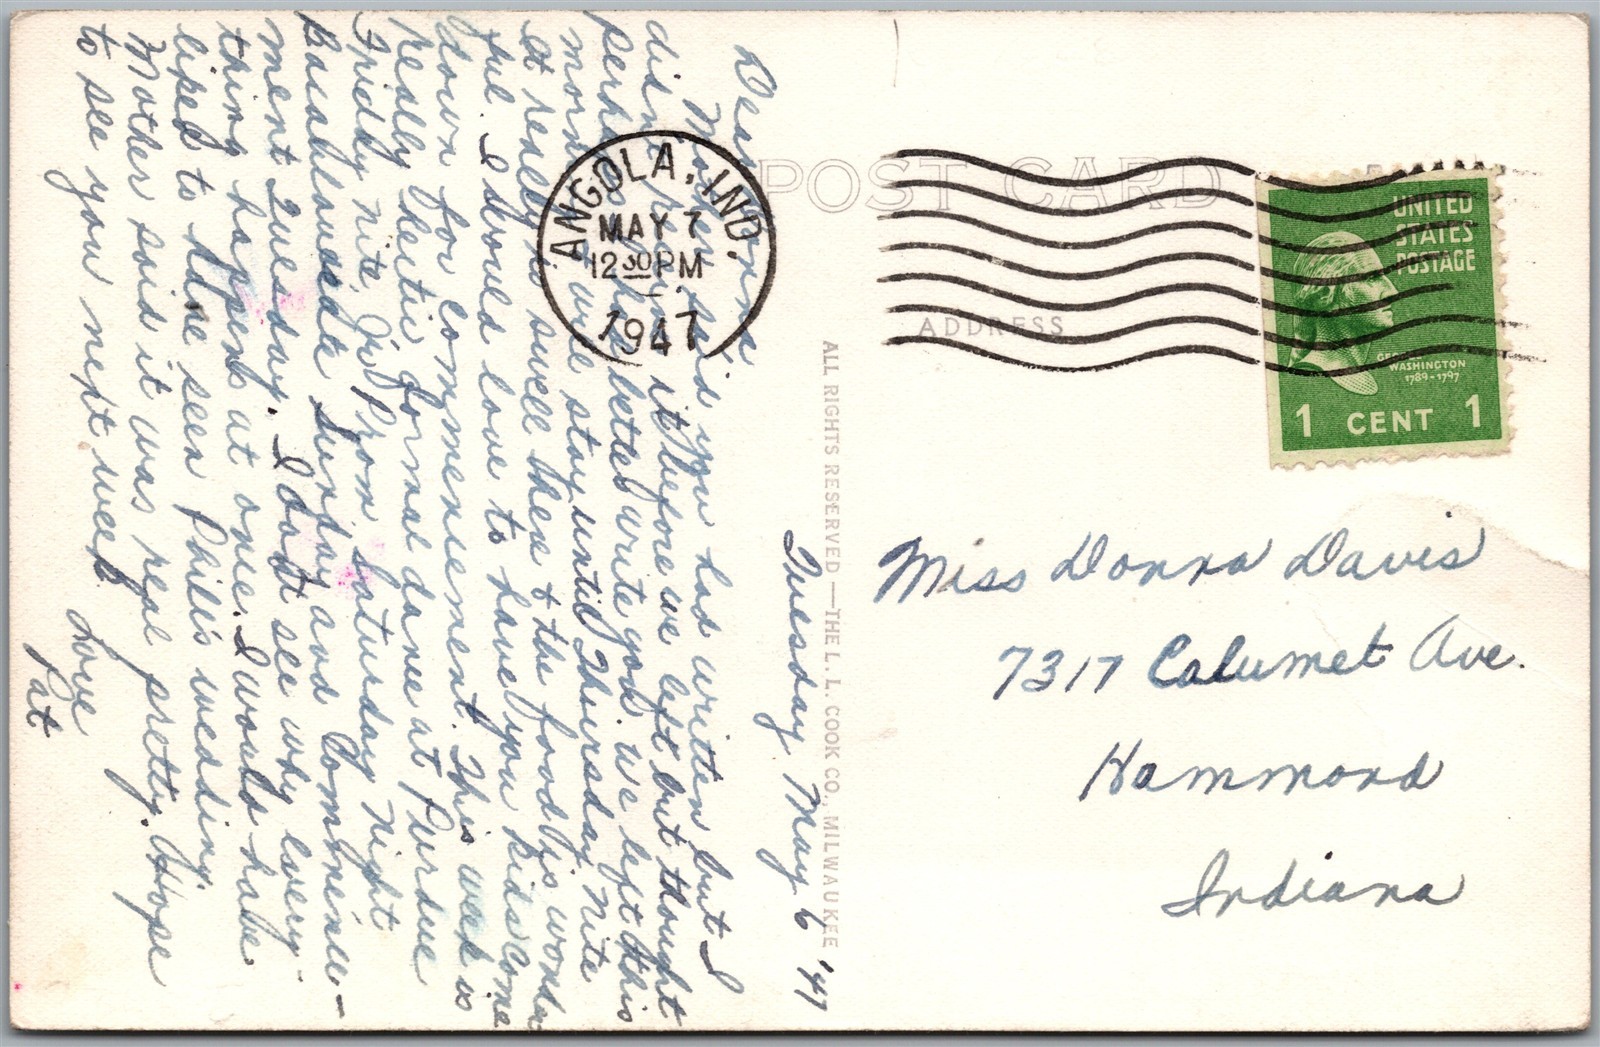 Tuesday May 6 '47
Dear Donna
Mother said you had written but I
didn't it before we left but thought
perhaps better write you. We left this
morn will stay until Thursday Nite
It's really swell here & the food is wonder-
ful. I would love to have you kids come
down for Commensement. This week is
really hectic formal dance at Purdue
Friday nite, Jr. Prom Saturday Night
Baccalaureate Sunday and Commense-
ment Tuesday. I don't see why every-
thing happens at once. I would have
liked to have seen Phill's wedding.
Mother said it was real pretty. Hope
to see you next week.
Love
Pat
POST CARD
ADDRESS
ALL RIGHTS RESERVED — THE L. L. COOK CO., MILWAUKEE
ANGOLA, IND.
MAY 7
12 30 PM
1947
UNITED
STATES
POSTAGE
GEORGE
WASHINGTON
1789-1797
1 CENT 1
Miss Donna Davis
7317 Calumet Ave.
Hammond
Indiana